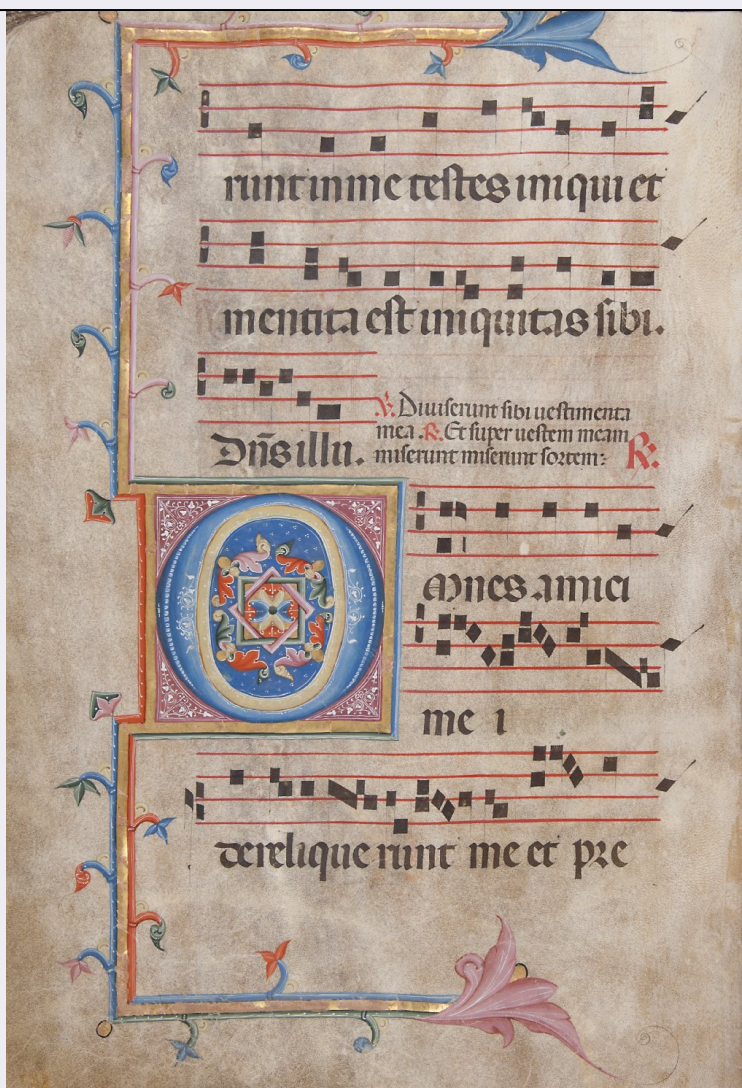 runt in me testes iniqui et
mentita est iniquitas sibi.
Dn̄s illu.
℣. Diuiserunt sibi uestimenta
mea. ℟. Et super uestem meam
miserunt miserunt sortem: ℟:
Omnes amici
me i
derelique runt me et pre